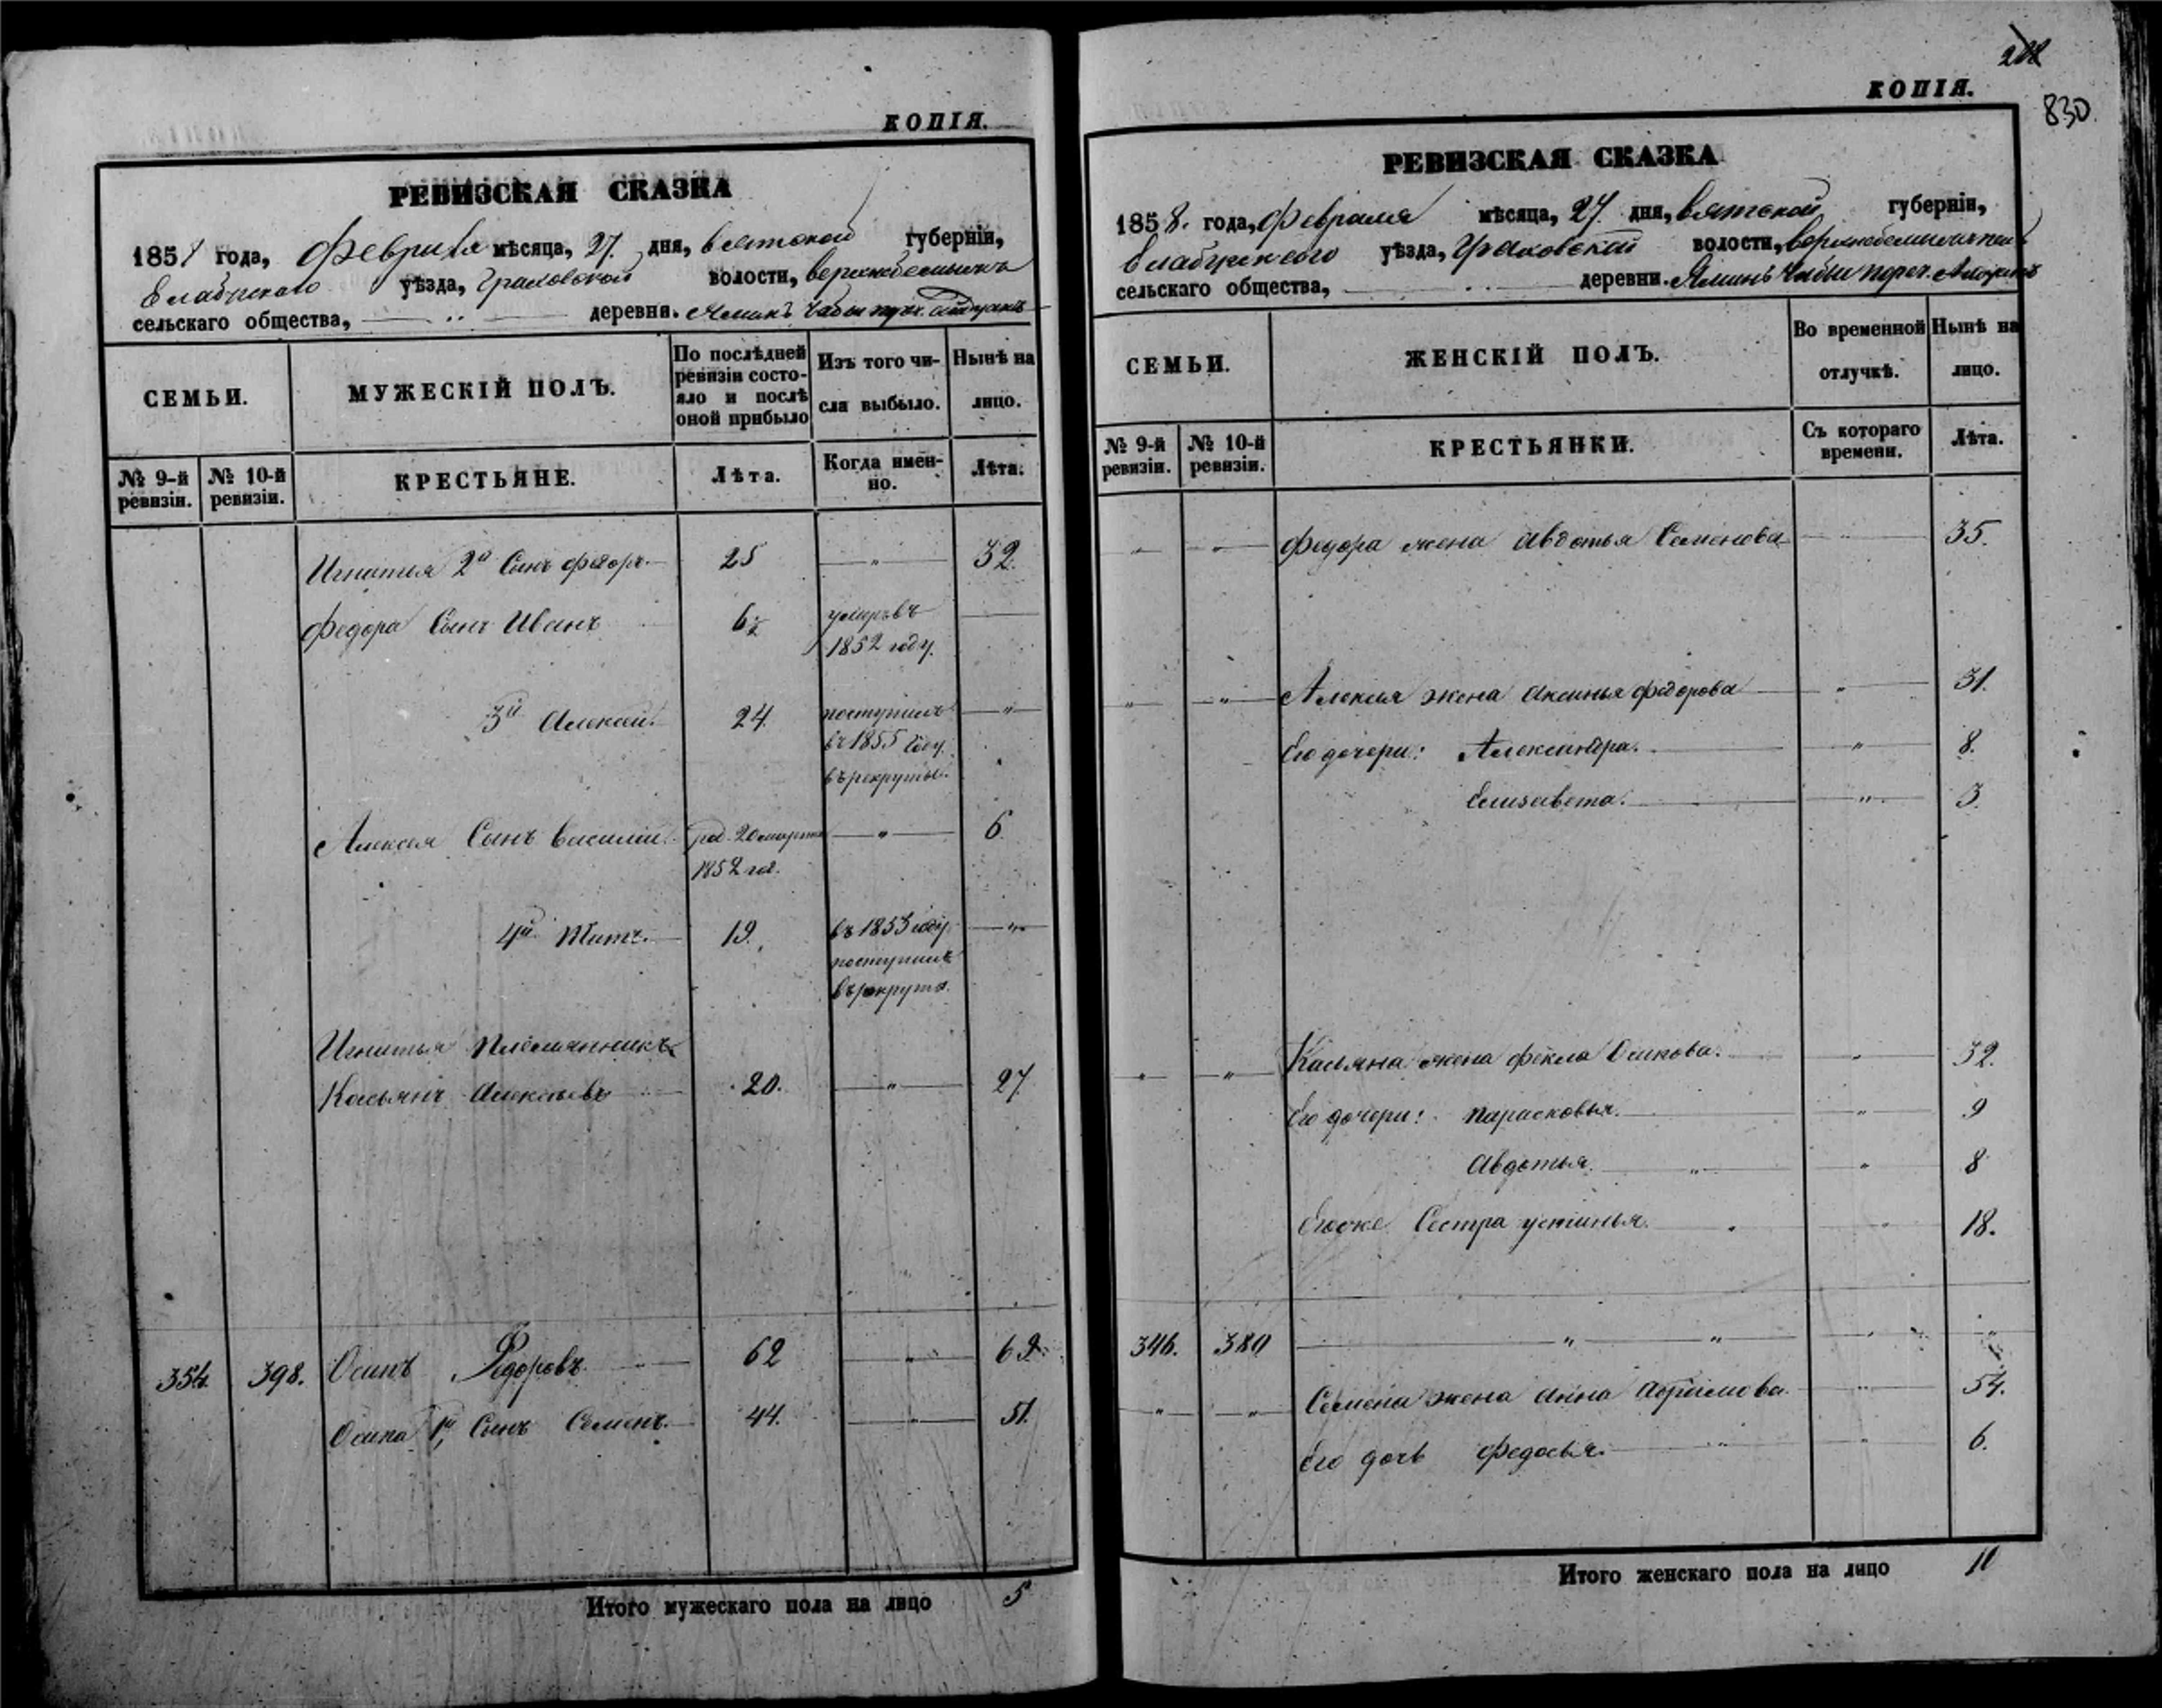 КОПІЯ.
РЕВИЗСКАЯ СКАЗКА
1858 года, Февраля мѣсяца, 27. дня, Вятской губерніи,
Елабужскаго уѣзда, Граховской волости,
сельскаго общества, деревни.
СЕМЬИ.
МУЖЕСКІЙ ПОЛЪ.
По послѣдней ревизіи состояло и послѣ оной прибыло
Изъ того числа выбыло.
Нынѣ на лицо.
№ 9-й ревизіи.
№ 10-й ревизіи.
КРЕСТЬЯНЕ.
Лѣта.
Когда именно.
Лѣта.
Игнатья 2й Сынъ Федоръ. 25 " 32.
Федора Сынъ Иванъ 6½ умеръ въ
1852 году.
3й Алексей. 24. поступилъ "
въ 1855 году
въ рекруты.
Алексея Сынъ Василий. род. 20 марта " 6
1852 год.
4й Титъ. 19. въ 1855 году "
поступилъ
въ рекруты.
Игнатья племянникъ
Касьянъ Алексеевъ 20. " 27.
354. 398. Осипъ Федоровъ 62 " 69.
Осипа 1й Сынъ Семенъ. 44. " 51.
Итого мужескаго пола на лицо 5
208
830.
КОПІЯ.
РЕВИЗСКАЯ СКАЗКА
1858. года, Февраля мѣсяца, 27. дня, Вятской губерніи,
Елабужскаго уѣзда, Граховской волости,
сельскаго общества, деревни.
СЕМЬИ.
ЖЕНСКІЙ ПОЛЪ.
Во временной отлучкѣ.
Нынѣ на лицо.
№ 9-й ревизіи.
№ 10-й ревизіи.
КРЕСТЬЯНКИ.
Съ котораго времени.
Лѣта.
" " Федора жена Авдотья Семенова " 35.
" " Алексея жена Аксинья Федорова " 31.
Его дочери: Александра. " 8.
Елизавета. " 3.
" " Касьяна жена Фекла Осипова. " 32.
Его дочери: Парасковья. " 9
Авдотья. " " 8
Егоже Сестра Устинья. " 18.
346. 380 " " " "
" " Семена жена Анна Абрамова. " 54.
Его дочь Федосья. " " 6.
Итого женскаго пола на лицо 10